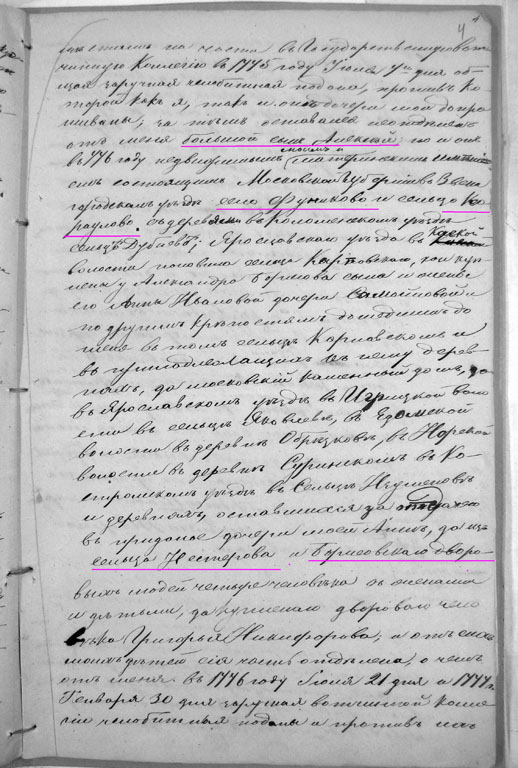 4
частымъ на части въ Государственную вот-
чинную Коллегію въ 1775 году Іюля 7го дня об-
щая заручная челобитная подана, противъ ко-
торой какъ я, такъ и оныя дочери мои допра-
шиваны; за тѣмъ оставался
отъ меня большой сынъ Алексѣй но и онъ
въ 776 году недвижимымъ моимъ и материнскимъ имѣні-
емъ состоящимъ Московской Губерніи въ Звени-
городскомъ уѣздѣ село Фуниково и сельцо Ка-
раулово съ деревнями въ Коломенскомъ уѣздѣ
сельцѣ Дубнево; Ярославскаго уѣзда въ
волости половина сельца Карповскаго, кои куп-
лены у Александра Борисова сына и жены
его Анны Ивановой дочери Самойловой и
по другимъ крѣпостямъ дошедшимъ до
меня въ томъ сельцѣ Карповскомъ и
въ принадлежащихъ къ нему дерев-
няхъ, да московскій каменный домъ, да
въ Ярославскомъ уѣздѣ въ Игрицкой воло-
сти въ сельцѣ Яковлевѣ, въ Едомской
волости въ деревнѣ Образковѣ, въ Норской
волости въ деревнѣ Суринскомъ въ Ко-
стромскомъ уѣздѣ въ Сельцѣ Игуменовѣ
и деревнями, оставшихся за
въ приданое дочери моей Аннѣ, да изъ
сельца Нестерова и Борисовскаго дворо-
выхъ людей четыре человѣка съ женами
и дѣтьми, да дворовою чело-
вѣка Григорья Никифорова; и отъ всѣхъ
моихъ дѣтей сія часть отдѣлена, о чемъ
отъ меня въ 1776 году Іюля 21 дня и 1777 г.
Генваря 30 дня заручная вотчинной Колле-
гіи челобитныя поданы и противъ ихъ